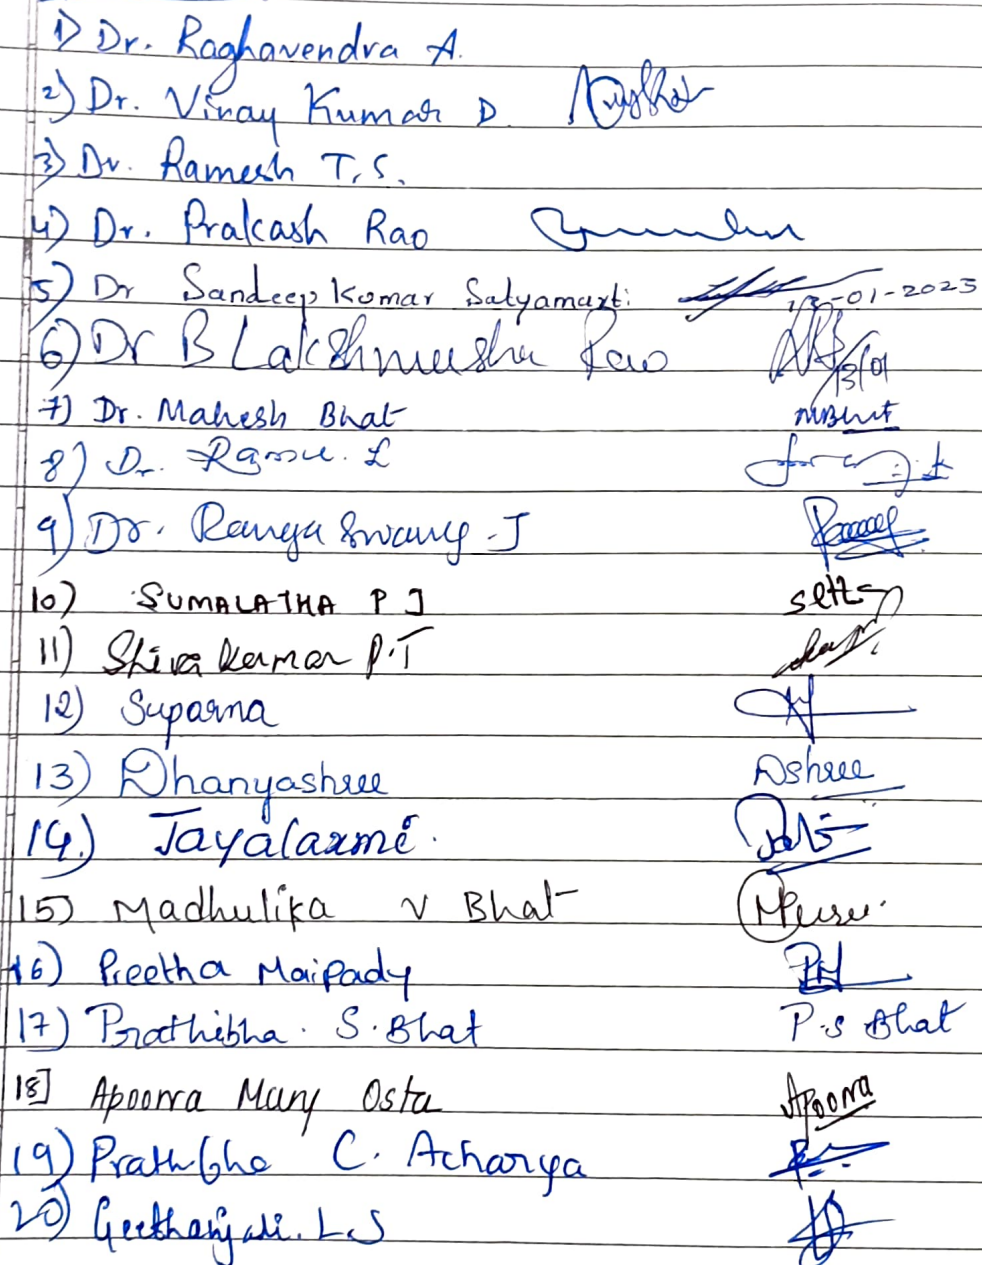 1) Dr. Raghavendra A.
2) Dr. Vinay Kumar D.
3) Dr. Ramesh T.S.
4) Dr. Prakash Rao
5) Dr Sandeep Kumar Satyamurti 13-01-2023
6) Dr B Lakshmeesha Rao 13/01
7) Dr. Mahesh Bhat MBhat
8) Dr. L
9) Dr. Ranga Swamy .J
10) SUMALATHA P J
11) Shiva Kumar P.T
12) Suparna
13) Dhanyashree Dshree
14.) Jayalaxmi.
15) Madhulika V Bhat
16) Preetha Maipady
17) Prathibha . S. Bhat P.S Bhat
18] Apoorva Mary Osta Apoorva
19) Prathibha C. Acharya
20) Geethanjali. L.S